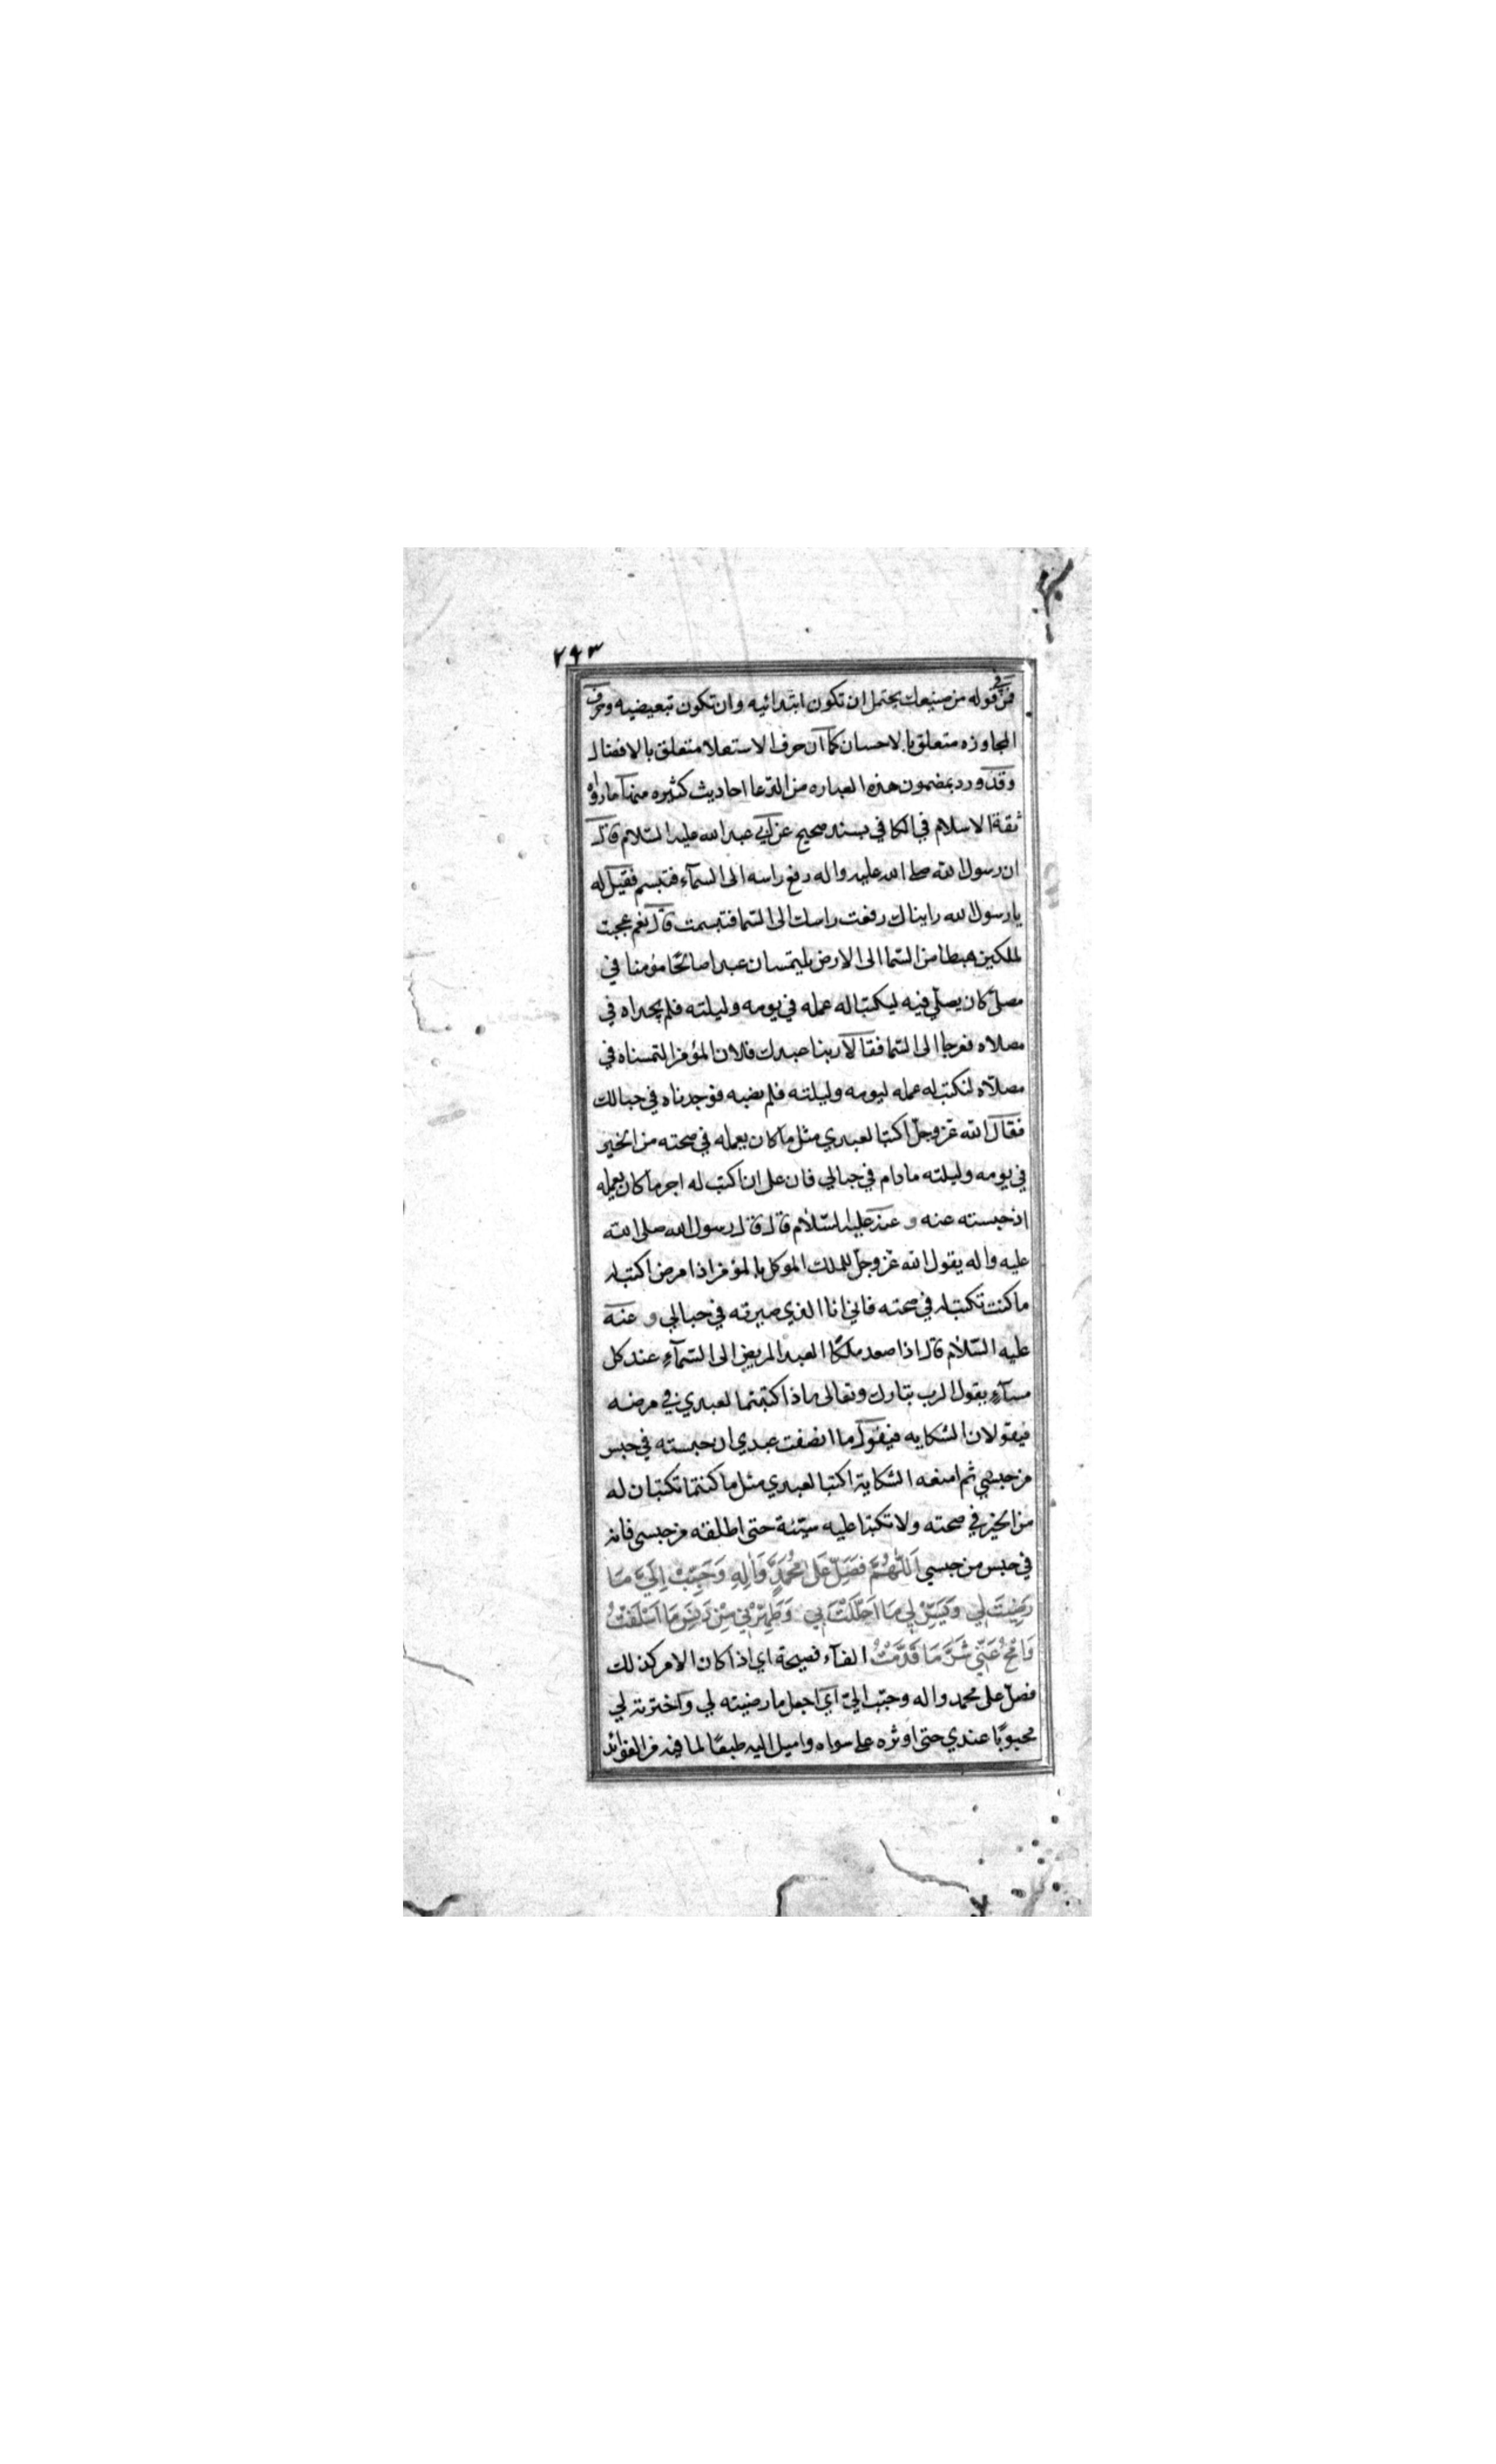 ٢٩٣
فمن في قوله من صنيعك يحتمل ان تكون ابتدائيه وان تكون تبعيضيه وحرف
المجاوزه متعلق بالاحسان كما ان حرف الاستعلا متعلق بالافضال
وقد ورد بمضمون هذه العباره من الدعا احاديث كثيره منها ما رواه
ثقة الاسلام في الكافي بسند صحيح عن ابي عبد الله عليه السلام قال
ان رسول الله صلى الله عليه واله رفع راسه الى السمآء فتبسم فقيل له
يا رسول الله رايناك رفعت راسك الى السما فتبسمت قال نعم عجبت
لملكين هبطا من السما الى الارض يلتمسان عبدا صالحًا مؤمنا في
مصلّى كان يصلّي فيه ليكتبا له عمله في يومه وليلته فلم يجداه في
مصلاه فعرجا الى السما فقالا ربنا عبدك فلان المؤمن التمسناه في
مصلّاه لنكتب له عمله ليومه وليلته فلم نصبه فوجدناه في حبالك
فقال الله عز وجل اكتبا لعبدي مثل ما كان يعمله في صحته من الخير
في يومه وليلته مادام في حبالي فان علي ان اكتب له اجر ما كان يعمله
اذ حبسته عنه وعنه عليه السّلام قال قال رسول الله صلى الله
عليه واله يقول الله عز وجل للملك الموكل بالمؤمن اذا مرض اكتب له
ما كنت تكتب له في صحته فاني انا الذي صيرته في حبالي وعنه
عليه السّلام قال اذا صعد ملكا العبد المريض الى السّمآء عند كل
مسآء يقول الرب تبارك وتعالى ماذا كتبتما لعبدي في مرضه
فيقولان الشكايه فيقول ما انصفت عبدي ان حبسته في حبس
من حبسي ثم امنعه الشكاية اكتبا لعبدي مثل ما كنتما تكتبان له
من الخير في صحته ولا تكتبا عليه سيّئة حتى اطلقه من حبسي فانه
في حبس من حبسي اَللّٰهُمَّ فَصَلِّ عَلىٰ مُحَمَّدٍ وَاٰلِهِ وَحَبِّبْ اِلَيَّ مَا
رَضِيتَ لِي وَيَسِّرْ لِي مَا اَحْلَلْتَ بِي وَطَهِّرْنِي مِنْ دَنَسِ مَا اَسْلَفْتُ
وَامْحُ عَنِّي شَرَّ مَا قَدَّمْتُ الفآء فصيحة اي اذا كان الامر كذلك
فصلّ على محمد واله وحبّب اليّ اي اجعل ما رضيته لي واخترته لي
محبوبًا عندي حتى اوثره على سواه واميل اليه طبعًا لما فيه من الفوائد